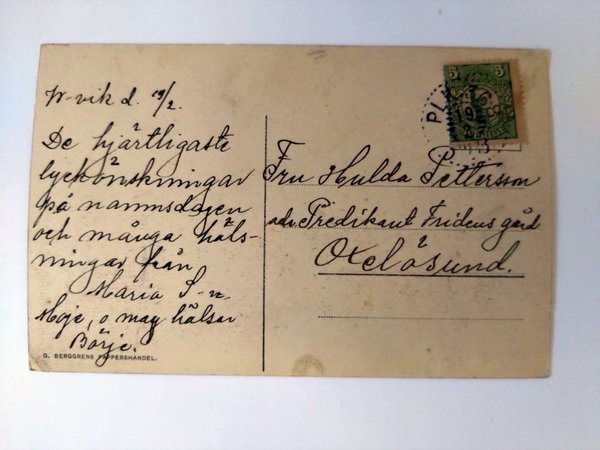 W-vik d. 19/2.
De hjärtligaste
lyckönskningar
på namnsdagen
och många häls-
ningar från
Maria S-n.
Moje, o may hälsar
Börje.
G. BERGGRENS PAPPERSHANDEL.
5 5
SVERIGE
Fru Hulda Pettersson
adr. Predikant Fridens gård
Oxelösund.